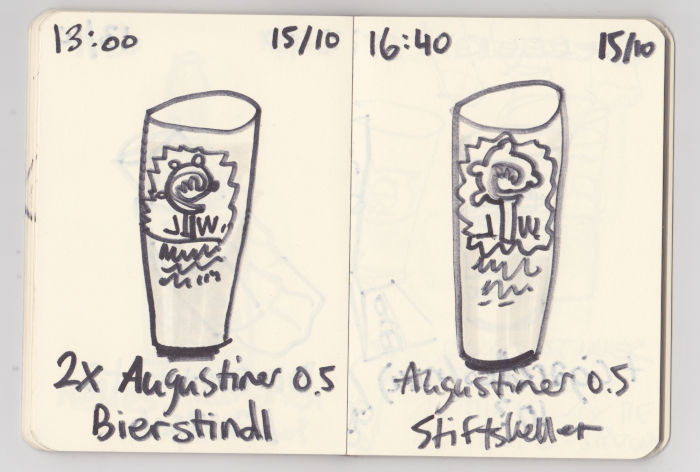 13:00
15/10
J W.
2x Augustiner 0.5
Bierstindl
16:40
15/10
J W
Augustiner 0.5
Stiftskeller